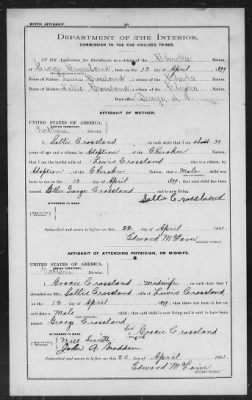 BIRTH AFFIDAVIT.
DEPARTMENT OF THE INTERIOR,
COMMISSION TO THE FIVE CIVILIZED TRIBES.
IN RE Application for Enrollment, as a citizen of the Cherokee Nation,
of George Crossland, born on the 13 day of April 1899
Name of Father: Lewis Crossland a citizen of the Cherokee Nation.
Name of Mother: Sallie Crossland a citizen of the Cherokee Nation.
Post-office
AFFIDAVIT OF MOTHER.
UNITED STATES OF AMERICA,
INDIAN TERRITORY,
Northern District.
I, Sallie Crossland, on oath state that I am about 39
years of age and a citizen, by Adoption, of the Cherokee Nation;
that I am the lawful wife of Lewis Crossland, who is a citizen, by
Adoption, of the Cherokee Nation, that a Male child
was born to me on the 13 day of April 1899, that said child has been
named George Crossland, and is now living.
Sallie Crossland
WITNESSES TO MARK:
Subscribed and sworn to before me this 22 day of April 1901.
Edward
NOTARY PUBLIC.
AFFIDAVIT OF ATTENDING PHYSICIAN, OR MIDWIFE.
UNITED STATES OF AMERICA,
INDIAN TERRITORY,
Northern District.
I, Crossland, a midwife, on oath state that I
attended on Mrs. Sallie Crossland, wife of Lewis Crossland
on the 13 day of April 1899, that there was born to her on said date a
Male child; that said child is now living and is said to have been named
George Crossland
Crossland
WITNESSES TO MARK:
Will Smith
John A Madden
Subscribed and sworn to before me this 22 day of April 1901.
Edward
NOTARY PUBLIC.